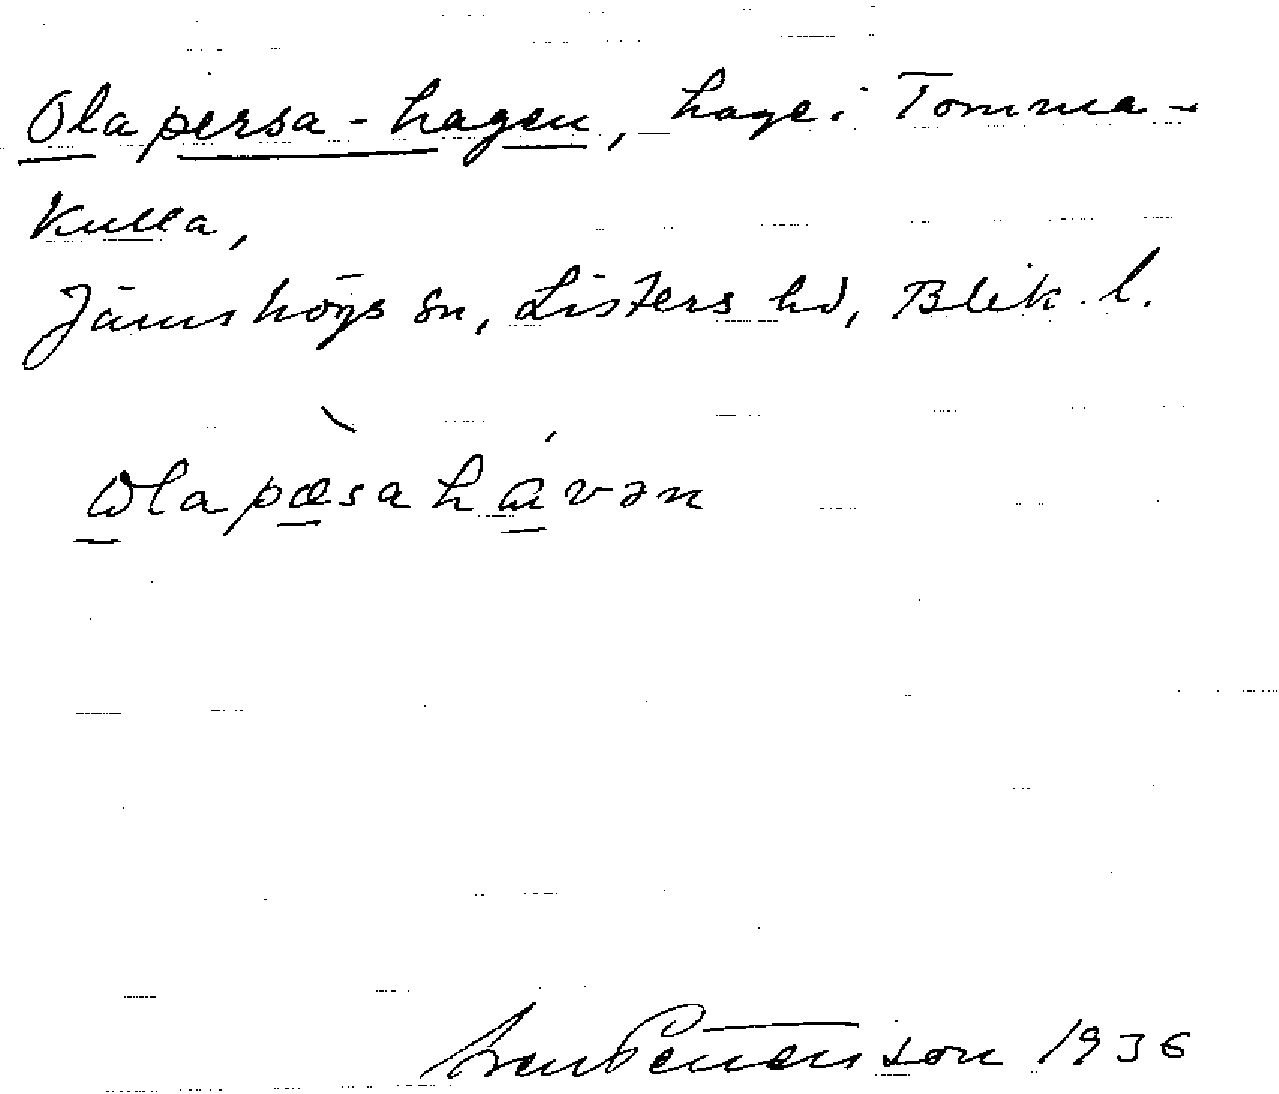 Olapersa-hagen, hage i Tomma-
kulla,
Jämshögs sn, Listers hd, Blek. l.
ωlapæsahavən
Sven Pettersson 1936